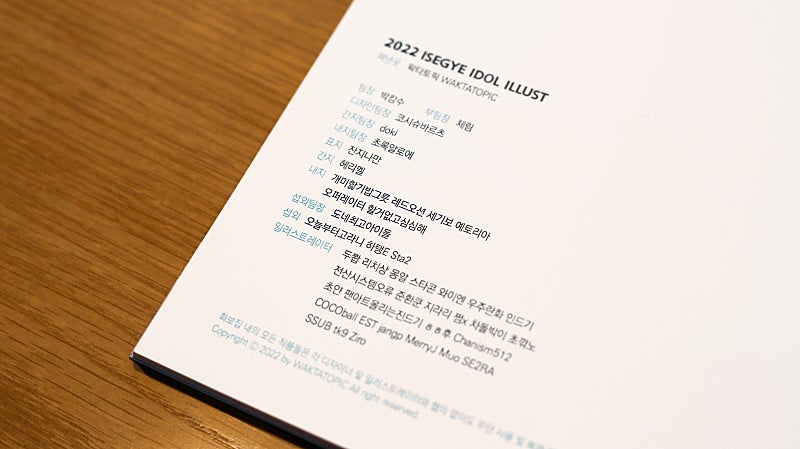 2022 ISEGYE IDOL ILLUST
펴낸곳 왁타토픽 WAKTATOPIC
팀장 박캉수 부팀장 체림
디자인팀장 코시슈바르츠
간지팀장 doki
내지팀장 초록일로에
표지 잔지나만
간지 헤리엘
내지 개미핥기밥그릇 레드오션 세기보 에토리아
오퍼레이터 할거없고심심해
섭외팀장 도네최고아이돌
섭외 오늘부터고라니 하탱E Sta2
일러스트레이터 두쫩 리치상 몽알 스타콘 와이엔 우주란화 인드기
전산시스템오류 준환쿤 지라리 쩜x 차돌박이 초깎노
초얀 팬아트올리는진드기 ㅎㅎ후 Chanism512
COCOball EST jangp MerryJ Muo SE2RA
SSUB tk9 Ziro
화보집 내의 모든 작품들은 각 디자이너 및 일러스트레이터와 협의 없이도 무단 사용 및 복제
Copyright ⓒ 2022 by WAKTATOPIC All right reserved.